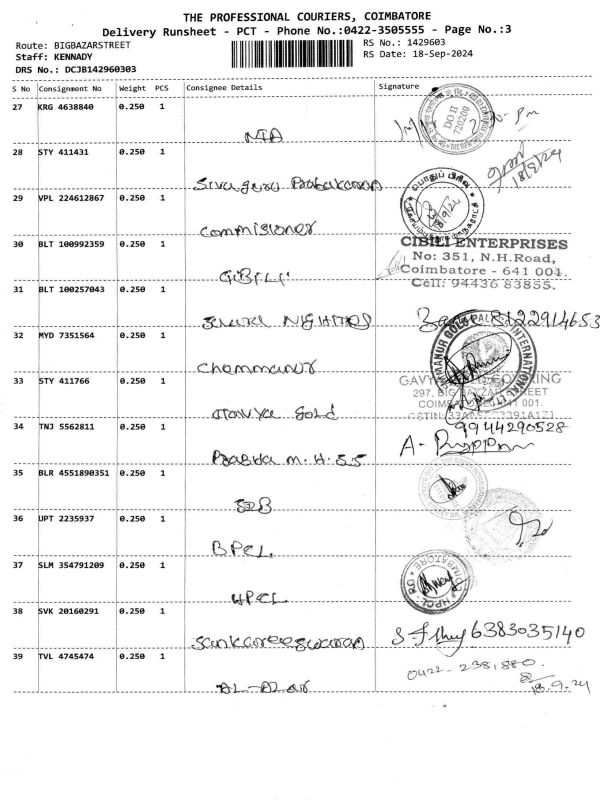 THE PROFESSIONAL COURIERS, COIMBATORE
Delivery Runsheet - PCT - Phone No.:0422-3505555 - Page No.:3
Route: BIGBAZARSTREET
RS No.: 1429603
Staff: KENNADY
RS Date: 18-Sep-2024
DRS No.: DCJB142960303
S No Consignment No Weight PCS Consignee Details Signature
27 KRG 4638840 0.250 1
NIA
DO II
28 STY 411431 0.250 1
Sivaguru Prabakaran
18/9/24
29 VPL 224612867 0.250 1
Commissioner
பொதுப் பிரிவு
30 BLT 100992359 0.250 1
CIBILI
CIBILI ENTERPRISES
No: 351, N.H.Road,
Coimbatore - 641 001.
Cell: 94436 83855.
31 BLT 100257043 0.250 1
NIGHTIES
8122914653
32 MYD 7351564 0.250 1
Chemmanur
33 STY 411766 0.250 1
Gold
34 TNJ 5562811 0.250 1
Prabha M.H.SS
9944290528
35 BLR 4551890351 0.250 1
36 UPT 2235937 0.250 1
BPCL
37 SLM 354791209 0.250 1
HPCL
38 SVK 20160291 0.250 1
Sankareeswaran
6383035140
39 TVL 4745474 0.250 1
AL-AZAR
0422-238,880.
18.9.24